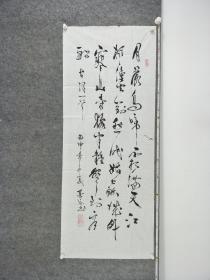 月落烏啼霜滿天江
楓漁火對愁眠姑蘇城外
寒山寺夜半鐘聲到客
船
丙申年